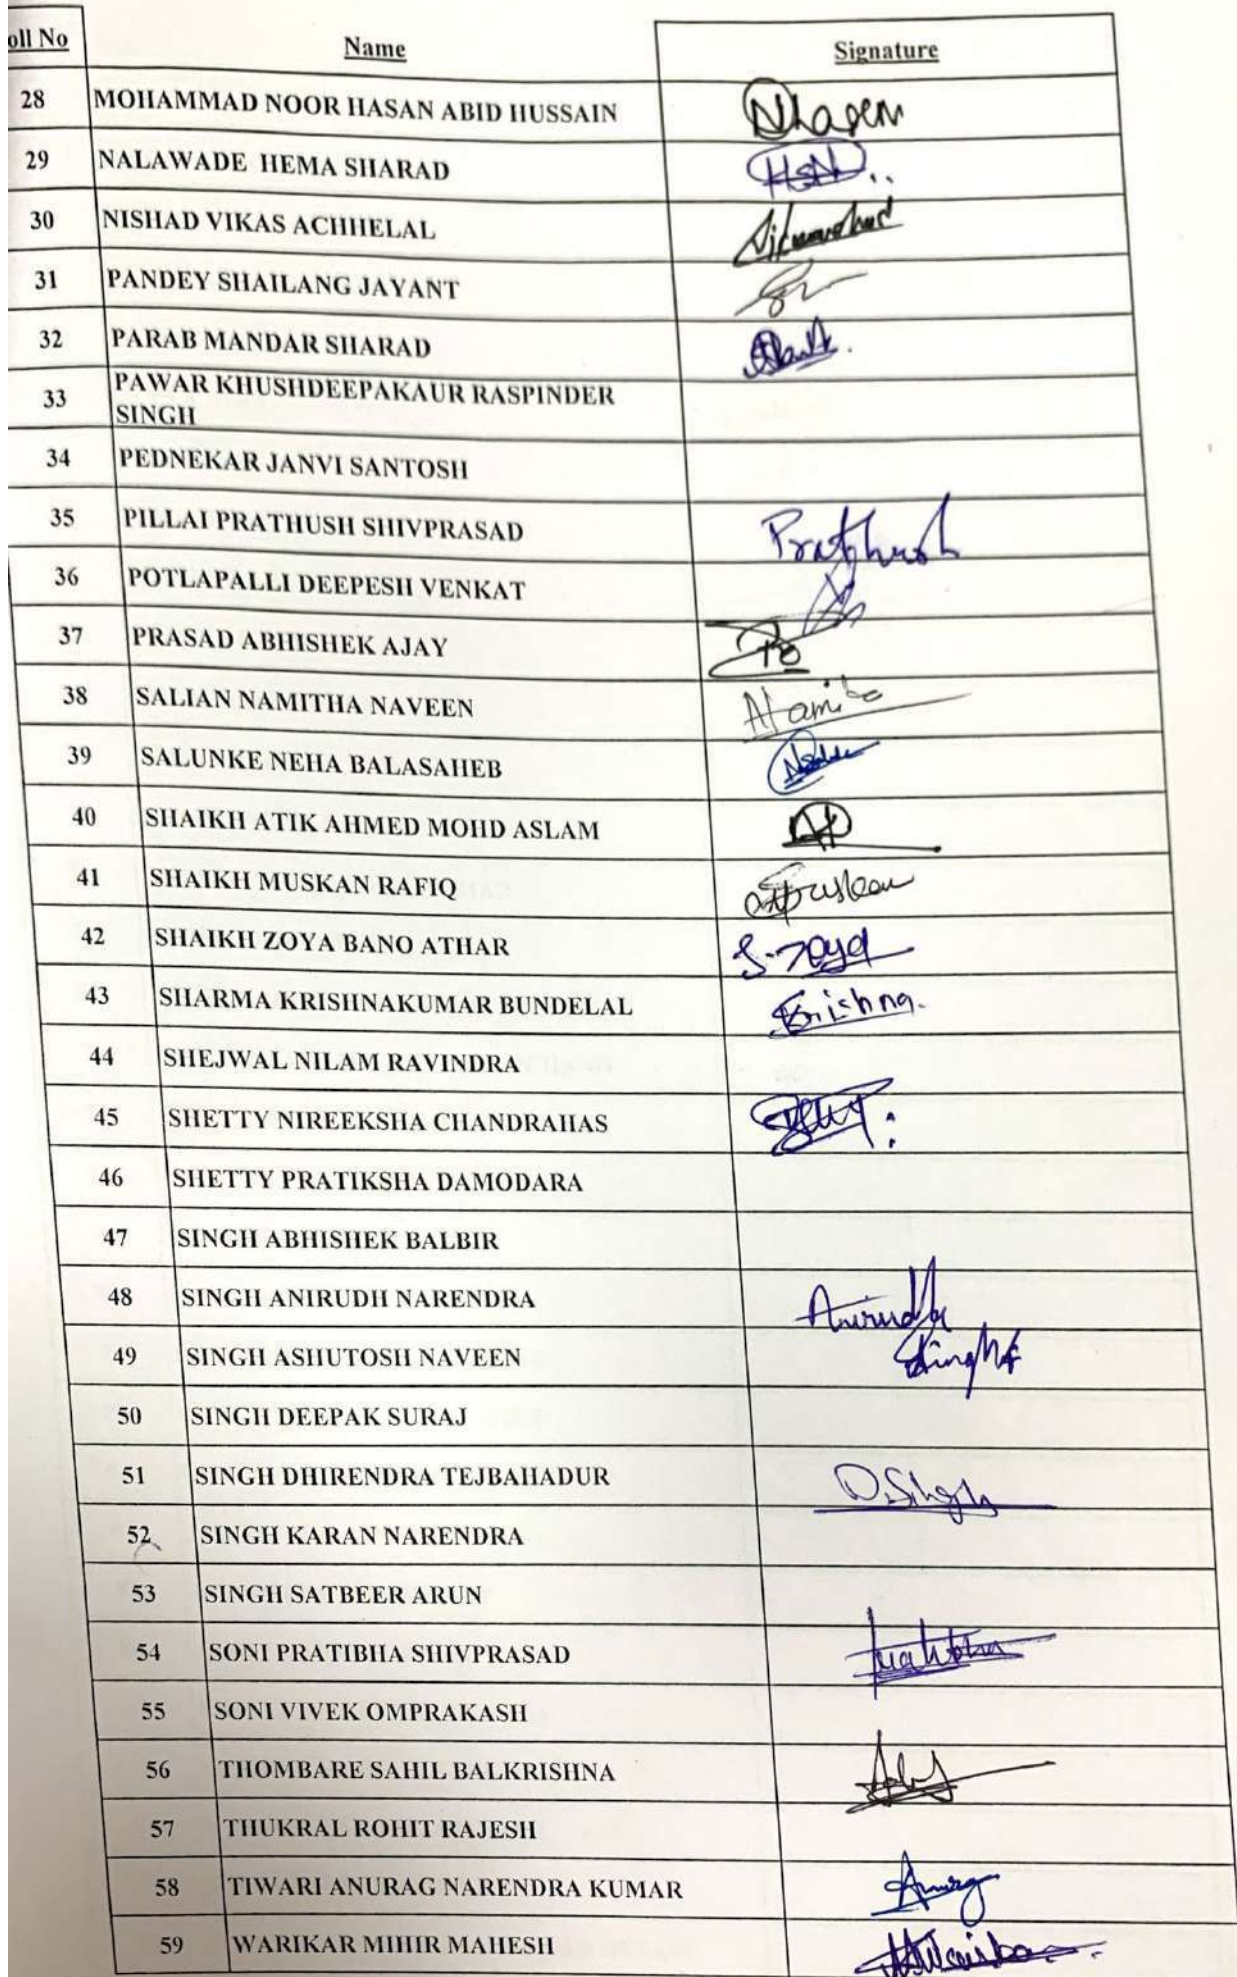 oll No Name Signature
28 MOHAMMAD NOOR HASAN ABID HUSSAIN Nhasan
29 NALAWADE HEMA SHARAD HSN..
30 NISHAD VIKAS ACHHELAL
31 PANDEY SHAILANG JAYANT
32 PARAB MANDAR SHARAD
33 PAWAR KHUSHDEEPAKAUR RASPINDER
SINGH
34 PEDNEKAR JANVI SANTOSH
35 PILLAI PRATHUSH SHIVPRASAD Prathush
36 POTLAPALLI DEEPESH VENKAT
37 PRASAD ABHISHEK AJAY
38 SALIAN NAMITHA NAVEEN
39 SALUNKE NEHA BALASAHEB
40 SHAIKH ATIK AHMED MOHD ASLAM
41 SHAIKH MUSKAN RAFIQ
42 SHAIKH ZOYA BANO ATHAR S.Zoya
43 SHARMA KRISHNAKUMAR BUNDELAL Krishna.
44 SHEJWAL NILAM RAVINDRA
45 SHETTY NIREEKSHA CHANDRAHAS
46 SHETTY PRATIKSHA DAMODARA
47 SINGH ABHISHEK BALBIR
48 SINGH ANIRUDH NARENDRA Anirudh
49 SINGH ASHUTOSH NAVEEN
50 SINGH DEEPAK SURAJ
51 SINGH DHIRENDRA TEJBAHADUR D.Singh
52 SINGH KARAN NARENDRA
53 SINGH SATBEER ARUN
54 SONI PRATIBHA SHIVPRASAD
55 SONI VIVEK OMPRAKASH
56 THOMBARE SAHIL BALKRISHNA
57 THUKRAL ROHIT RAJESH
58 TIWARI ANURAG NARENDRA KUMAR Anurag
59 WARIKAR MIHIR MAHESH